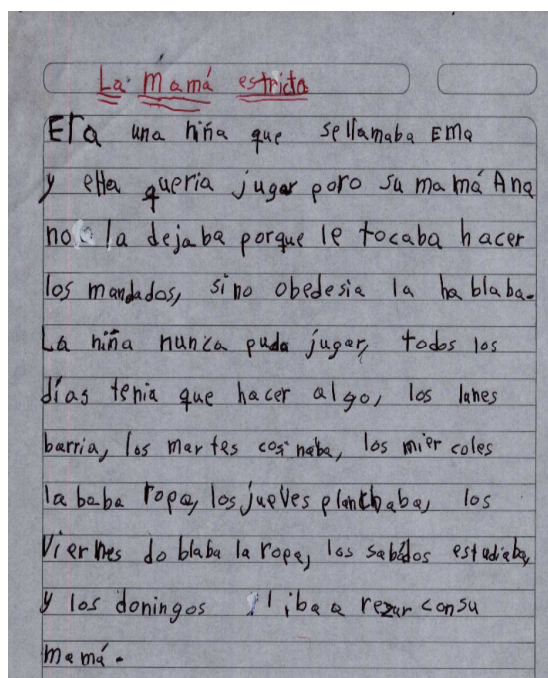 La Mamá estricta
Era una niña que sellamaba Ema
y ella queria jugar poro su mamá Ana
no la dejaba porque le tocaba hacer
los mandados, sino obedesia la hablaba.
La niña nunca puda jugar, todos los
días tenia que hacer algo, los lunes
barria, los martes cosinaba, los mier coles
lababa ropa, los jueves planchaba, los
Viernes doblaba la ropa, los sabidos estudiaba,
y los doningos iba a rezar consu
mamá.